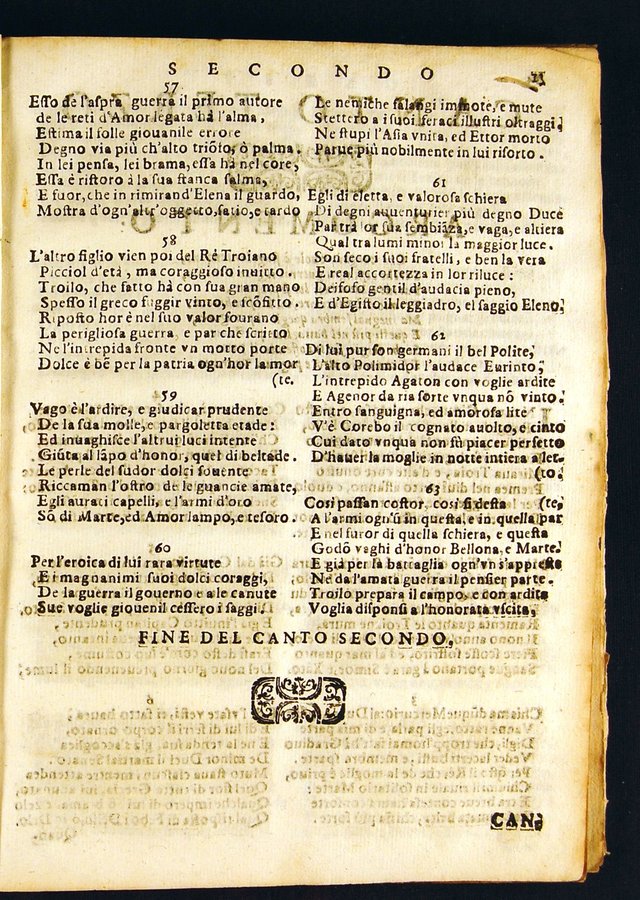 SECONDO 21
57
Esso de l'aspra guerra il primo autore
de le reti d'Amor legata hà l'alma,
Estima il folle giouanile errore
Degno via più ch'alto triōfo, ò palma.
In lei pensa, lei brama, essa hà nel core,
Essa è ristoro à la sua stanca salma,
E fuor, che in rimirand'Elena il guardo,
Mostra d'ogn'altr'oggetto, satio, e tardo
58
L'altro figlio vien poi del Rè Troiano
Picciol d'età, ma coraggioso inuitto.
Troilo, che fatto hà con sua gran mano
Spesso il greco fuggir vinto, e scōfitto.
Riposto hor è nel suo valor sourano
La perigliosa guerra, e par che scritto
Ne l'intrepida fronte vn motto porte
Dolce è bē per la patria ogn'hor la mor
(te.
59
Vago è l'ardire, e giudicar prudente
De la sua molle, e pargoletta etade:
Ed inuaghisce l'altrui luci intente
Giūta al lāpo d'honor, quel di beltade.
Le perle del sudor dolci souente
Riccaman l'ostro de le guancie amate,
Egli aurati capelli, e l'armi d'oro
Sō di Marte, ed Amor lampo, e tesoro.
60
Per l'eroica di lui rara virtute
E i magnanimi suoi dolci coraggi,
De la guerra il gouerno e a le canute
Sue voglie giouenil cessero i saggi.
Le nemiche falangi immote, e mute
Stettero a i suoi feraci illustri oltraggi,
Ne stupì l'Asia vnita, ed Ettor morto
Parue più nobilmente in lui risorto.
61
Egli di eletta, e valorosa schiera
Di degni auuenturier più degno Duce
Par trà lor sua sembiāza, e vaga, e altiera
Qual tra lumi minoi la maggior luce.
Son seco i suoi fratelli, e ben la vera
E real accortezza in lor riluce:
Deifofo gentil d'audacia pieno,
E d'Egisto il leggiadro, el saggio Eleno,
62
Di lui pur son germani il bel Polite,
L'alto Polimidor l'audace Eurinto,
L'intrepido Agaton con voglie ardite
E Agenor da ria sorte vnqua nō vinto.
Entro sanguigna, ed amorosa lite
V'è Corebo il cognato auolto, e cinto
Cui dato vnqua non fù piacer perfetto
D'hauer la moglie in notte intiera a let-
(to.
63
Così passan costor, così si desta (te,
A l'armi ogn'ū in questa, e in quella par
E nel furor di quella schiera, e questa
Godō vaghi d'honor Bellona, e Marte.
E già per la battaglia ogn'vn s'appresta
Ne da l'amata guerra il pensier parte.
Troilo prepara il campo, e con ardita
Voglia disponsi a l'honorata vscita,
FINE DEL CANTO SECONDO,
CAN,